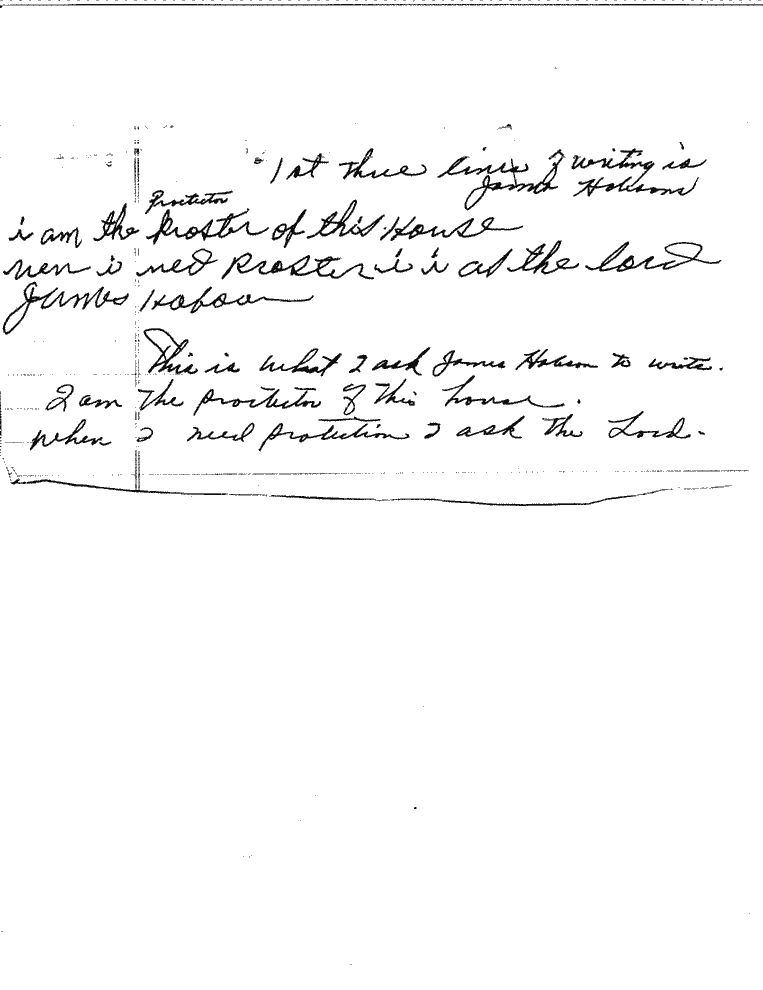 1st three lines of writing is
James Hobsons
Proctector
i am the Proster of this House
nen i ned Proster i i as the lord
James Hobson
This is what I ask James Hobson to write.
I am the proctector of this house.
when I need protection I ask the Lord.